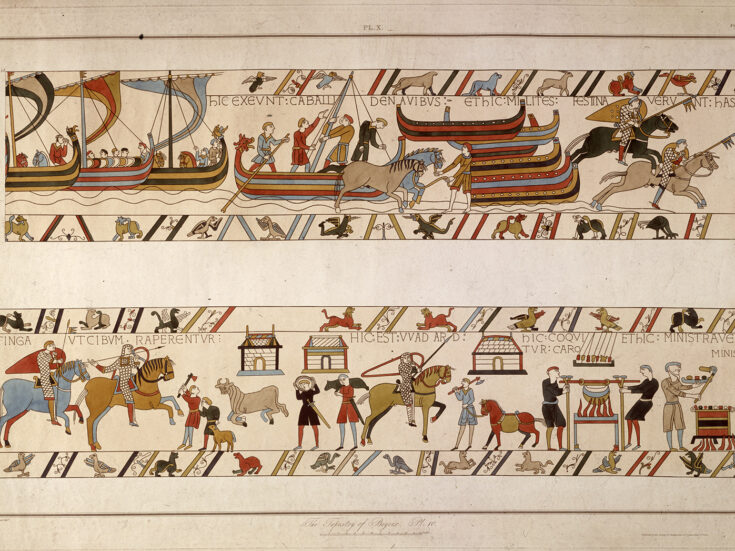 PL. X.
hIC EXEVNT: CABALLI DENAVIBVS:- ET hIC: MILITES: FESTINAVERVNT: hAS
TINGA VT CIBVM. RAPERENTVR: HIC. EST: VVADARD: hIC: COQVI ETHIC: MINISTRAVE
TVR: CARO MINIS
The Tapestry of Bayeux. Pl. IV.